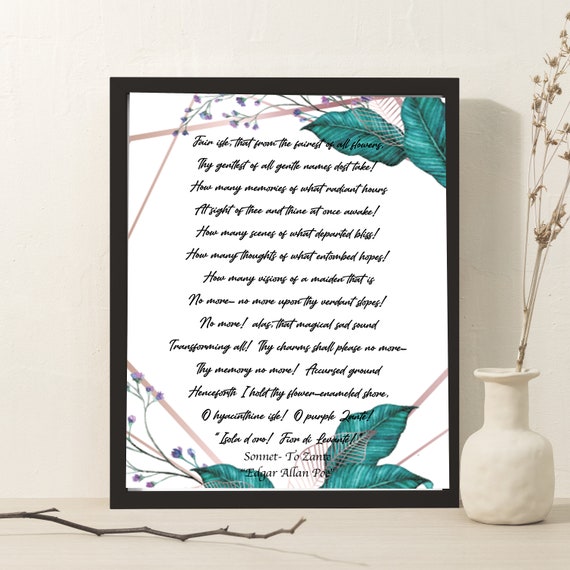 Fair isle, that from the fairest of all flowers,
Thy gentlest of all gentle names dost take!
How many memories of what radiant hours
At sight of thee and thine at once awake!
How many scenes of what departed bliss!
How many thoughts of what entombed hopes!
How many visions of a maiden that is
No more- no more upon thy verdant slopes!
No more! alas, that magical sad sound
Transforming all! Thy charms shall please no more-
Thy memory no more! Accursed ground
Henceforth I hold thy flower-enameled shore,
O hyacinthine isle! O purple Zante!
"Isola d'oro! Fior di Levante!"
Sonnet- To Zante
"Edgar Allan Poe"